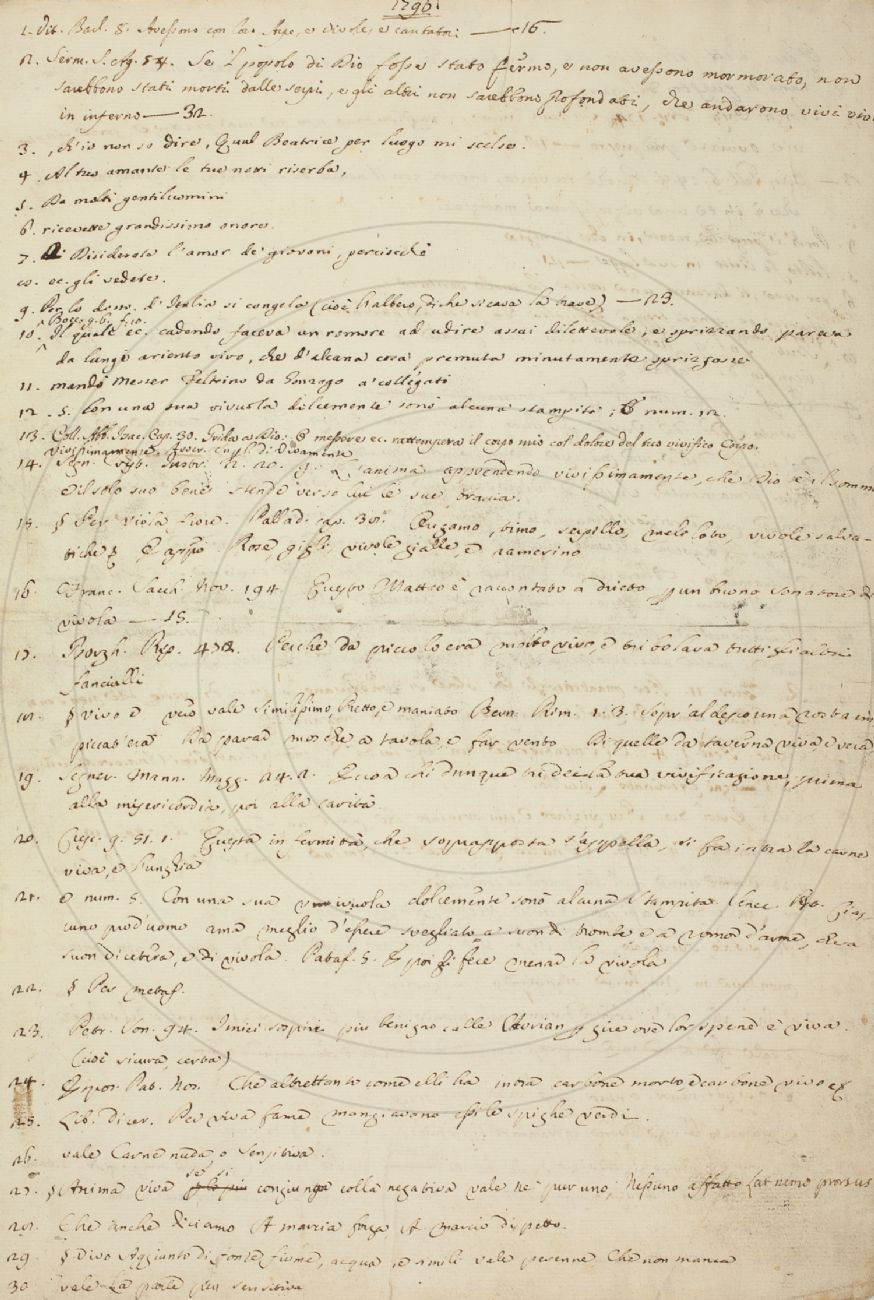 1796
1. Dit. Barl. 8. Avessono con loro Arpe, e vivole, e cantatori — 16.
2. Serm. S. Ag. 54. Se 'l popolo di Dio fosse stato fermo, e non avessono mormorato, non
sarebbono stati morti dalle serpi, e gli altri non sarebbono profondati, che andarono vivi vivi
in inferno — 32.
3. , ch'io non so dire, Qual Beatrice per luogo mi scelse.
4. Al tuo amante le tue notti riserba,
5. Da molti gentiluomini
6. ricevette grandissimo onore.
7. Di Disiderate l'amor de' giovani, perciocchè
8. ec. gli vedete.
9. Per lo dosso d'Italia si congela (cioè tra l'albero, di che si casa la trave) — 23.
^ Bocc. g. 6. f. 10.
10. Il quale ec. cadendo faceva un romore ad udire assai dilettevole, e sprizzando pareva
da lungi ariento vivo, che d'alcuna cosa premuta minutamente sprizzasse
11. mandò Messer Feltrino da Gonzago a' collegati
12. 5. Con una sua vivuola dolcemente sonò alcuna stampita; E num. 12.
13. Coll. Abb. Isac. Cap. 30. Grida a Dio: O Messere ec. rattempera il corpo mio col dolore del tuo vivifico Corpo.
Vivissimamente. Avver. Superl. di Vivamente
14. Segn. L'anima apprendendo vivissimamente, che Dio è il sommo
e il solo suo bene, stende verso lui le sue braccia.
15. § Per Viola fiore. Pallad. cap. 30. timo, serpillo, meliloto, vivole salva-
tiche E appo Rose, gigli, vivole gialle, e ramerino
16. Franc. Sacch. Nov. 194. Questo Matteo è raccontato a drieto per un buono sonatore di
vivola — 15.
17. Borgh. Rip. 478. Perchè da piccolo era molto vivo, e tribolava tutti gli altri
fanciulli
18. § Vivo e vero vale Similissimo, Pretto, e maniato Bern. Rim. 1. 3. Sopr'al desco una rosta im-
piccat'era Da parar mosche a tavola, e far vento Di quelle da taverna viva, e vera
19. Segner. Mann. Magg. 24. 2. Ecco a chi dunque tu dei la tua vivificazione, prima
alla misericordia, poi alla carità.
20. Cresc. 9. 51. 1. Questa infermità, che soprapposta s'appella, si fa intra la carne
viva, e l'unghia
21. E num. 5. Con una sua vivuola dolcemente sonò alcuna Stampita. Cias-
cuno prod'uomo ama meglio d'essere svegliato a suon di trombe e a romor d'arme, che a
suon di cetera, e di vivola. Pataf. 5. E poi si fece menar la vivola
22. § Per metaf.
23. Petr. Son. 94. I miei sospiri più benigno calle Avrian per gire ove lor spene è viva.
(cioè sicura, certa)
24. Espos. Pat. Nos. Che altrettanto come elli ha intra carbone morto, e carbone vivo ec.
25. Lib. dicer. Per viva fame mangiavano essi le spighe verdi.
26. vale Carne nuda, o Sensitiva.
27. § Anima viva se si congiunga colla negativa vale nè pur uno, Nessuno affatto Lat. nemo prorsus
28. Che anche diciamo A marcia forza, A marcio dispetto.
29. § Vivo Aggiunto di fonte, fiume, acqua, e simili vale perenne Che non manca
30. vale La parte più sensitiva